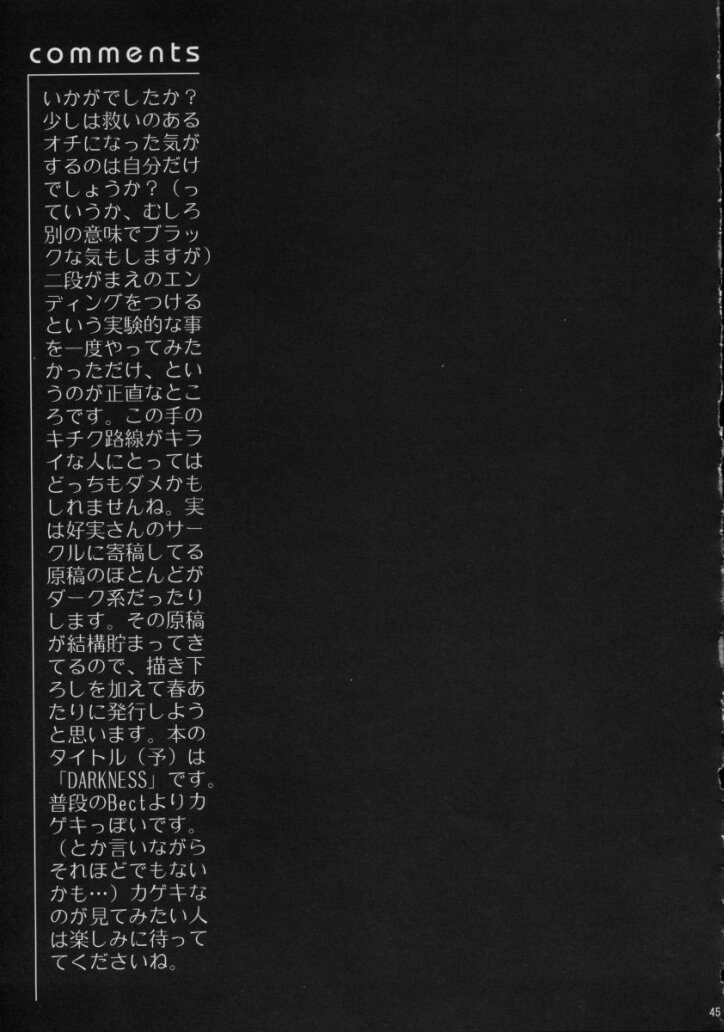 comments
いかがでしたか？
少しは救いのある
オチになった気が
するのは自分だけ
でしょうか？（っ
ていうか、むしろ
別の意味でブラッ
クな気もしますが）
二段がまえのエン
ディングをつける
という実験的な事
を一度やってみた
かっただけ、とい
うのが正直なとこ
ろです。この手の
キチク路線がキラ
イな人にとっては
どっちもダメかも
しれませんね。実
は好実さんのサー
クルに寄稿してる
原稿のほとんどが
ダーク系だったり
します。その原稿
が結構貯まってき
てるので、描き下
ろしを加えて春あ
たりに発行しよう
と思います。本の
タイトル（予）は
「DARKNESS」です。
普段のBectよりカ
ゲキっぽいです。
（とか言いながら
それほどでもない
かも…）カゲキな
のが見てみたい人
は楽しみに待って
てくださいね。
45